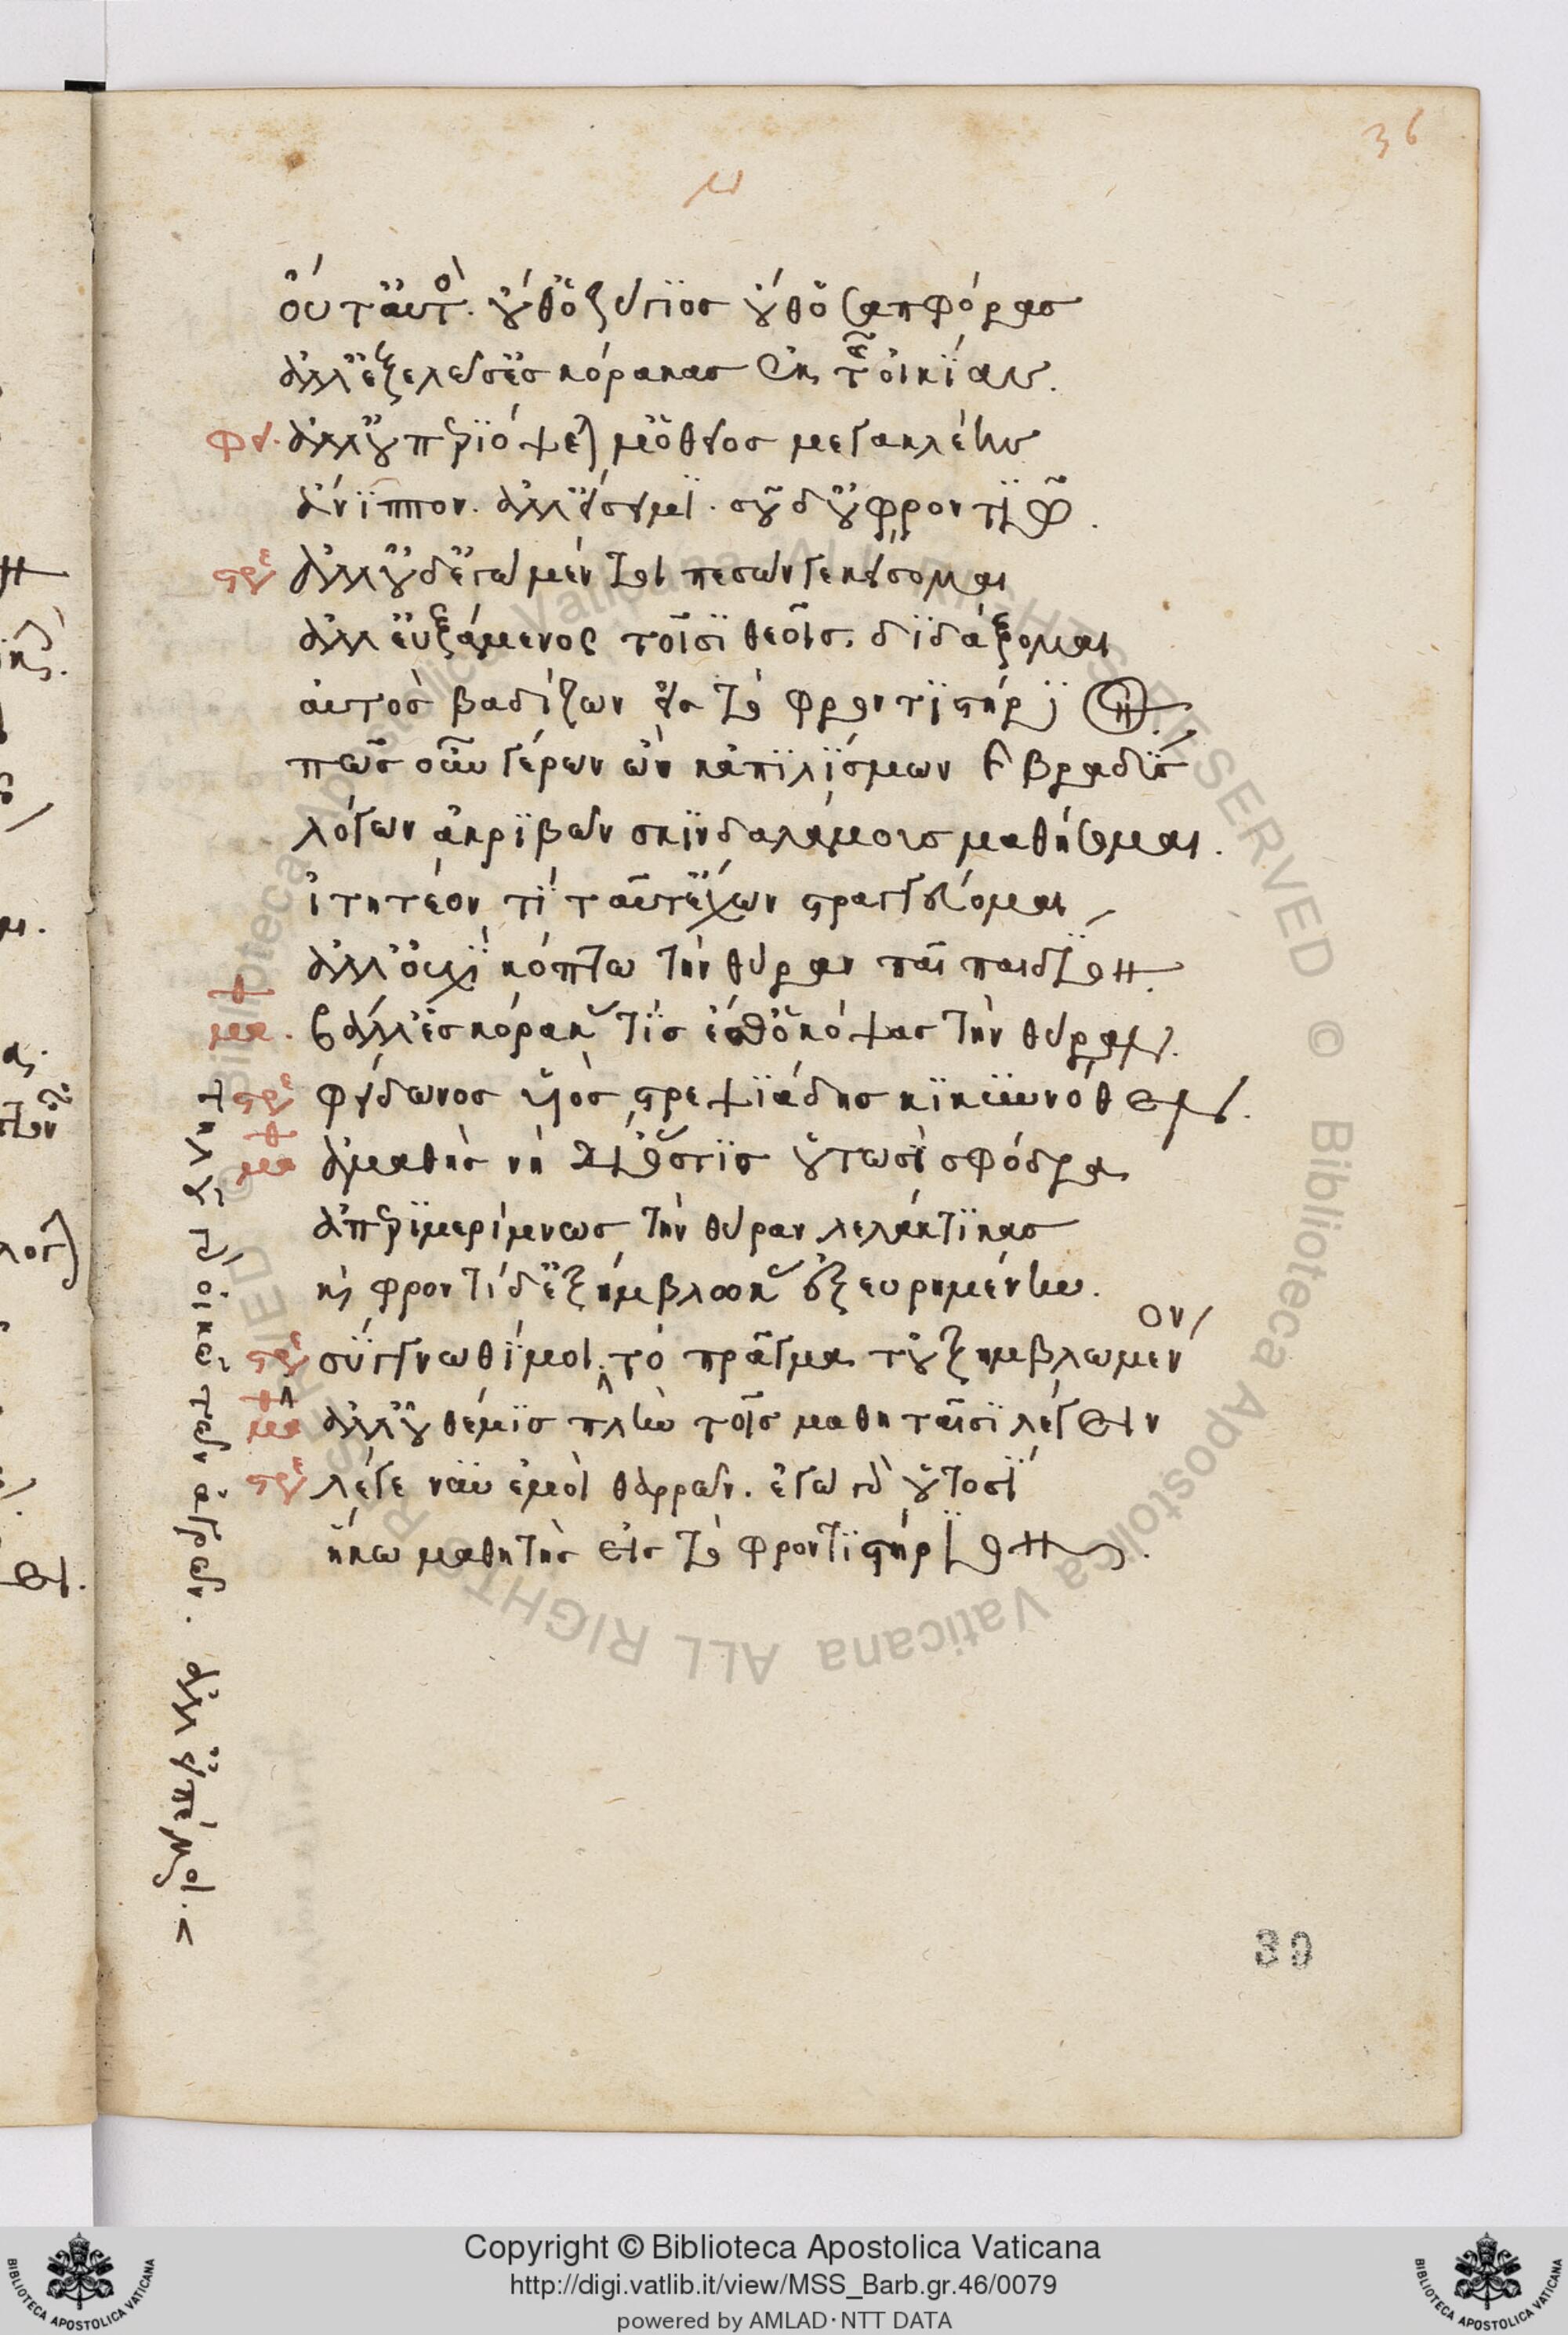 36
οὔτ' αὐτὸ. οὔθ' ὁ ζύγιος οὔθ' ὁ σαπφόρας
ἀλλ' ἐξελῶ σ' ἐς κόρακας ἐκ τῆς οἰκίας.
φει. ἀλλ' οὐ περιόψεταί μ' ὁ θεῖος μεγακλέης
ἄνιππον. ἀλλ' εἴσειμι. σοῦ δ' οὐ φροντιῶ.
στρε ἀλλ' οὐδ' ἐγὼ μέντοι πεσών γε κείσομαι
ἀλλ' εὐξάμενος τοῖσι θεοῖς. διδάξομαι
αὐτὸς βαδίζων εἰς τὸ φροντιστήριον
πῶς οὖν γέρων ὢν κἀπιλήσμων καὶ βραδὺς
λόγων ἀκριβῶν σκινδαλάμους μαθήσομαι.
ἰτητέον τί ταῦτ' ἔχων στραγγεύομαι
ἀλλ' οὐχὶ κόπτω τὴν θύραν παῖ παιδίον
μαθ. βάλλ' ἐς κόρακας τίς ἐσθ' ὁ κόψας τὴν θύραν.
στρε φείδωνος υἱὸς στρεψιάδης κικυννόθεν.
μαθ ἀμαθής γε νὴ δί' ὅστις οὑτωσὶ σφόδρα
ἀπεριμερίμνως τὴν θύραν λελάκτικας
καὶ φροντίδ' ἐξήμβλωκας ἐξευρημένην.
στρε σύγγνωθί μοι. τὸ πρᾶγμα τοὐξημβλωμένον
μαθ ἀλλ' οὐ θέμις πλὴν τοῖς μαθηταῖσι λέγειν
στρε λέγε νῦν ἐμοὶ θαρρῶν. ἐγὼ γὰρ οὑτοσὶ
ἥκω μαθητὴς εἰς τὸ φροντιστήριον.
39
Copyright © Biblioteca Apostolica Vaticana
http://digi.vatlib.it/view/MSS_Barb.gr.46/0079
powered by AMLAD · NTT DATA